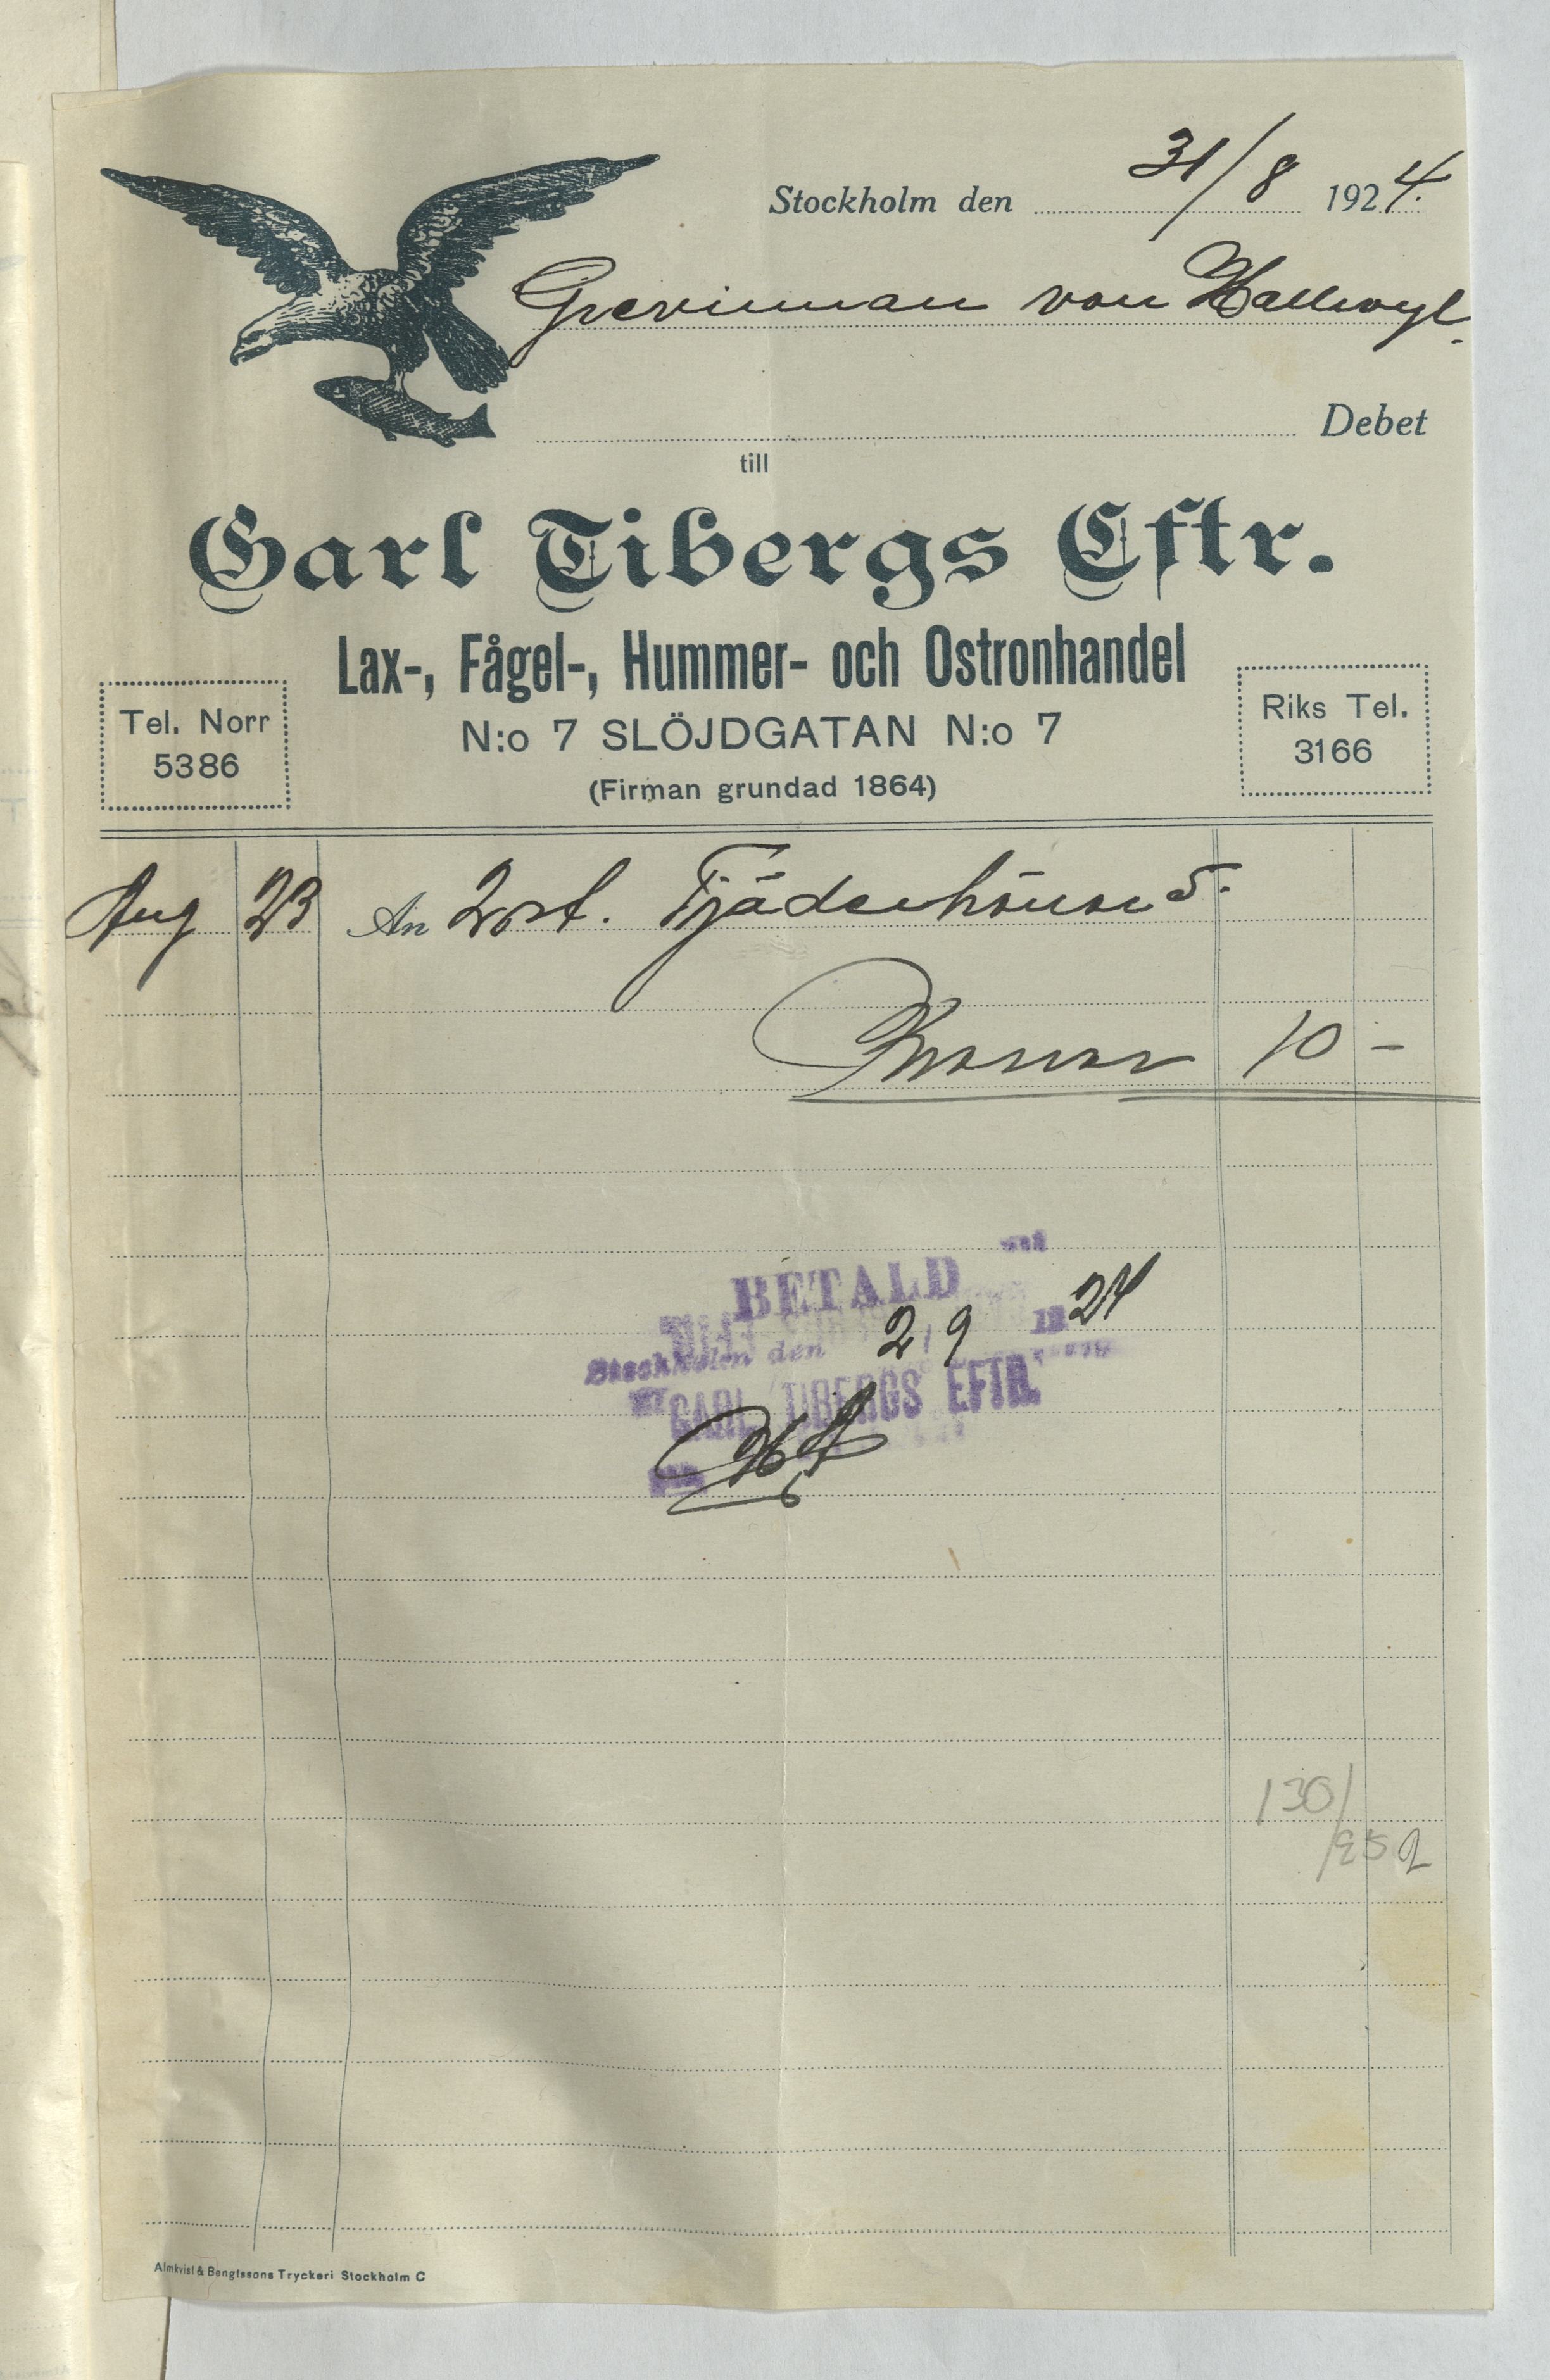 Stockholm den 31/8 1924.
Grevinnan von Hallwyl.
Debet
till
Carl Tibergs Eftr.
Lax-, Fågel-, Hummer- och Ostronhandel
Tel. Norr
5386
N:o 7 SLÖJDGATAN N:o 7
(Firman grundad 1864)
Riks Tel.
3166
Aug 23 An 2 st. Tjäderhönor 5.-
Kronor 10 -
BETALD
Stockholm den 2/9 1924
CARL TIBERGS EFTR.
130/
Almkvist & Bengtssons Tryckeri Stockholm C